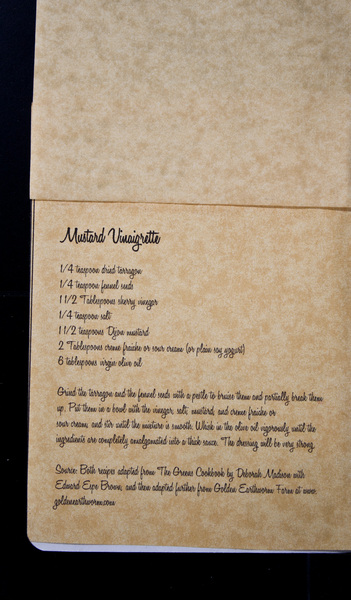 Mustard Vinaigrette
1/4 teaspoon dried tarragon
1/4 teaspoon fennel seeds
1 1/2 Tablespoons sherry vinegar
1/4 teaspoon salt
1 1/2 teaspoons Dijon mustard
2 Tablespoons creme fraiche or sour cream (or plain soy yogurt)
6 tablespoons virgin olive oil
Grind the tarragon and the fennel seeds with a pestle to bruise them and partially break them
up. Put them in a bowl with the vinegar, salt, mustard, and creme fraiche or
sour cream, and stir until the mixture is smooth. Whisk in the olive oil vigorously until the
ingredients are completely amalgamated into a thick sauce. The dressing will be very strong.
Source: Both recipes adapted from The Greens Cookbook by Deborah Madison with
Edward Espe Brown, and then adapted further from Golden Earthworm Farm at www.
goldenearthworm.com